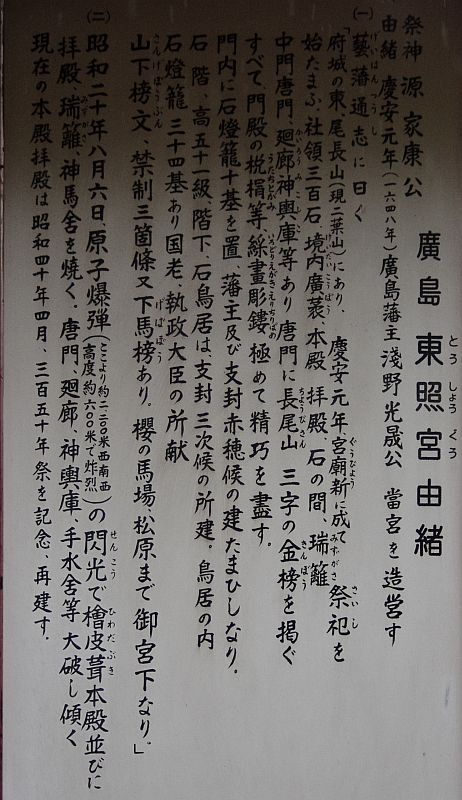 廣島 東照宮由緒
とう しょう ぐう
祭神 源 家康公
由緒 慶安元年(一六四八年)廣島藩主 淺野光晟公 當宮を 造営す
(一)「藝藩通志」に曰く
げいはんつうし
「府城の東、尾長山(現二葉山)にあり、慶安元年、宮廟新に成て 祭祀を
始たまふ、社領三百石、境内廣袤、本殿 拝殿、石の間、瑞籬
中門唐門、廻廊神輿庫等あり 唐門に長尾山 三字の金榜を掲ぐ
すべて門殿の梲楣等、綵畫彫鏤 極めて精巧を盡す。
門内に石燈籠十基を置、藩主及び支封赤穂侯の建たまひしなり。
石階、高五十一級、階下、石鳥居は、支封 三次侯の所建。鳥居の内
石燈籠 三十四基あり 国老、執政大臣の所献
山下榜文、禁制三箇條又 下馬榜あり。櫻の馬場、松原まで 御宮下なり。」
(二)昭和二十年八月六日、原子爆弾(ここより約二二〇〇米西南西 高度約六〇〇米で炸烈)の閃光で檜皮葺本殿並びに
拝殿、瑞籬、神馬舎を焼く、唐門、廻廊、神輿庫、手水舎等大破し傾く
現在の本殿拝殿は昭和四十年四月、三百五十年祭を記念、再建す。